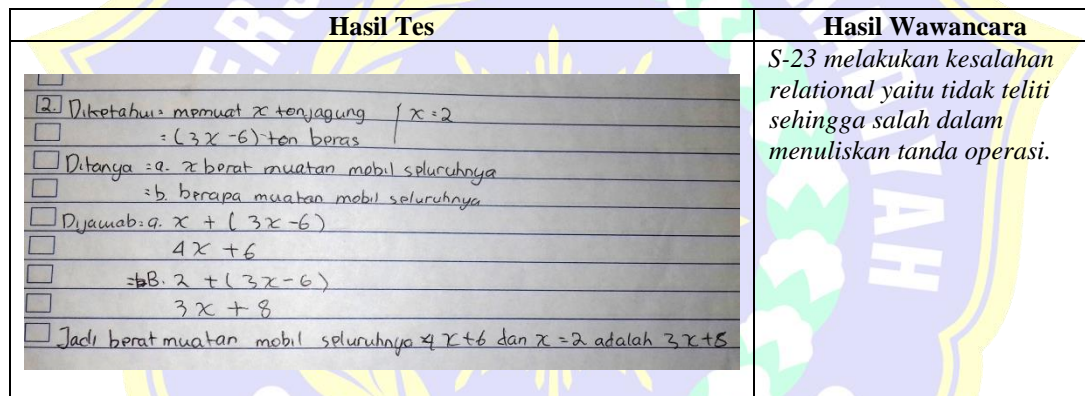 Hasil Tes
Hasil Wawancara
2. Diketahui = memuat x ton jagung | x = 2
= (3x - 6) ton beras
Ditanya = a. x berat muatan mobil seluruhnya
= b. berapa muatan mobil seluruhnya
Dijawab : a. x + (3x - 6)
4x + 6
= B. 2 + (3x - 6)
3x + 8
Jadi berat muatan mobil seluruhnya 4x+6 dan x = 2 adalah 3x+8
S-23 melakukan kesalahan
relational yaitu tidak teliti
sehingga salah dalam
menuliskan tanda operasi.